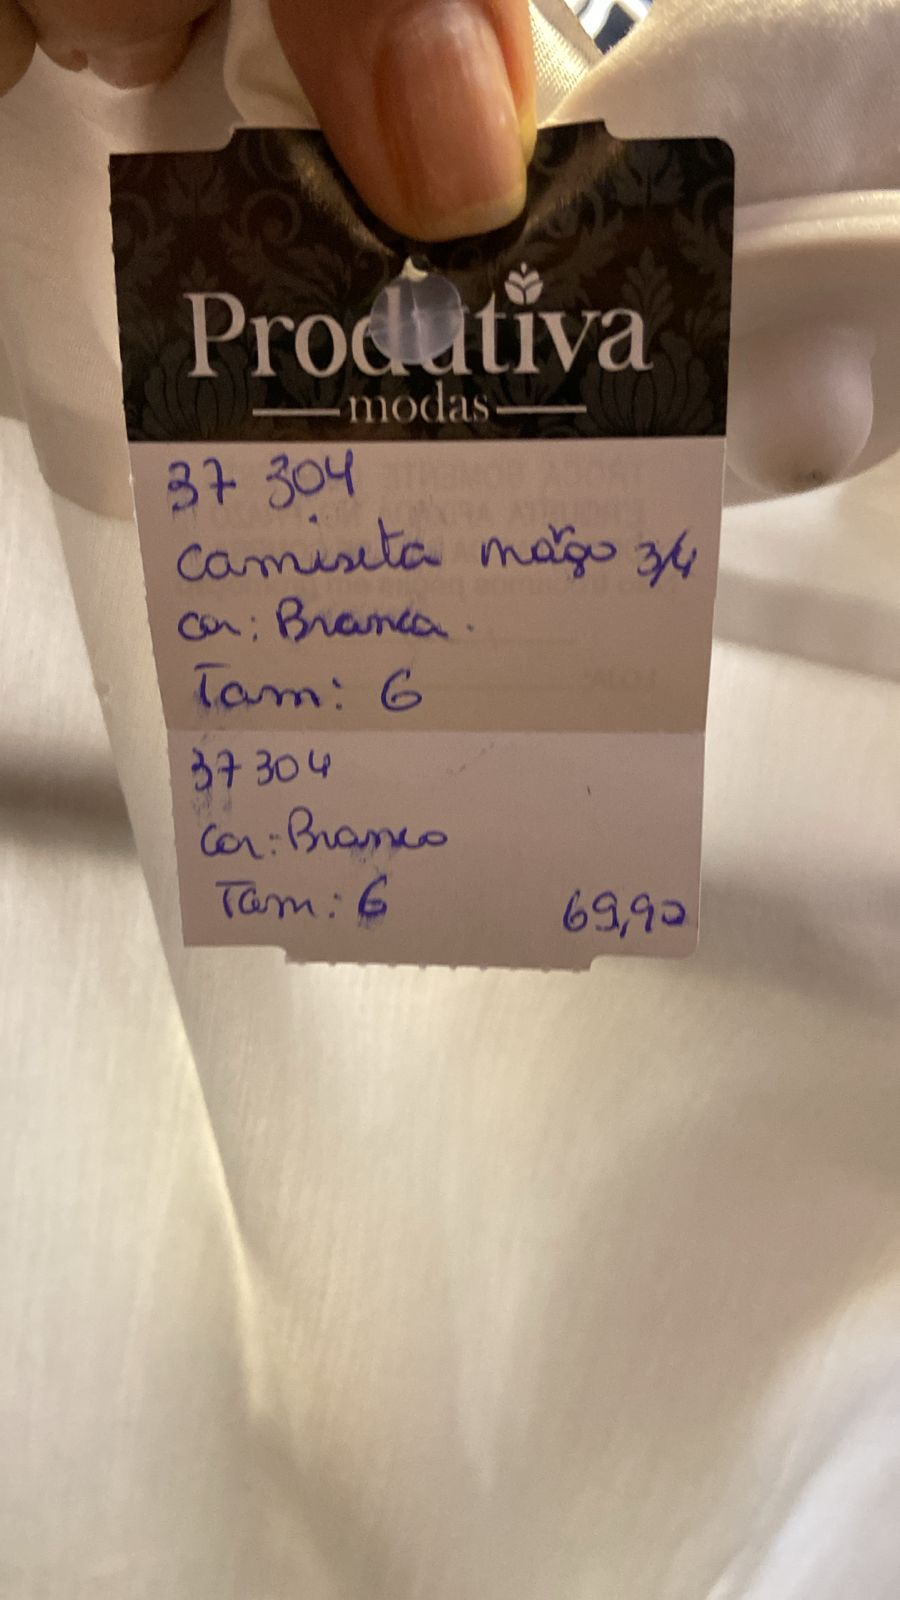 Produtiva
modas
37 304
camiseta
3/4
cor: Branca.
Tam: 6
37304
Cor: Branco
Tam: 6
69,90